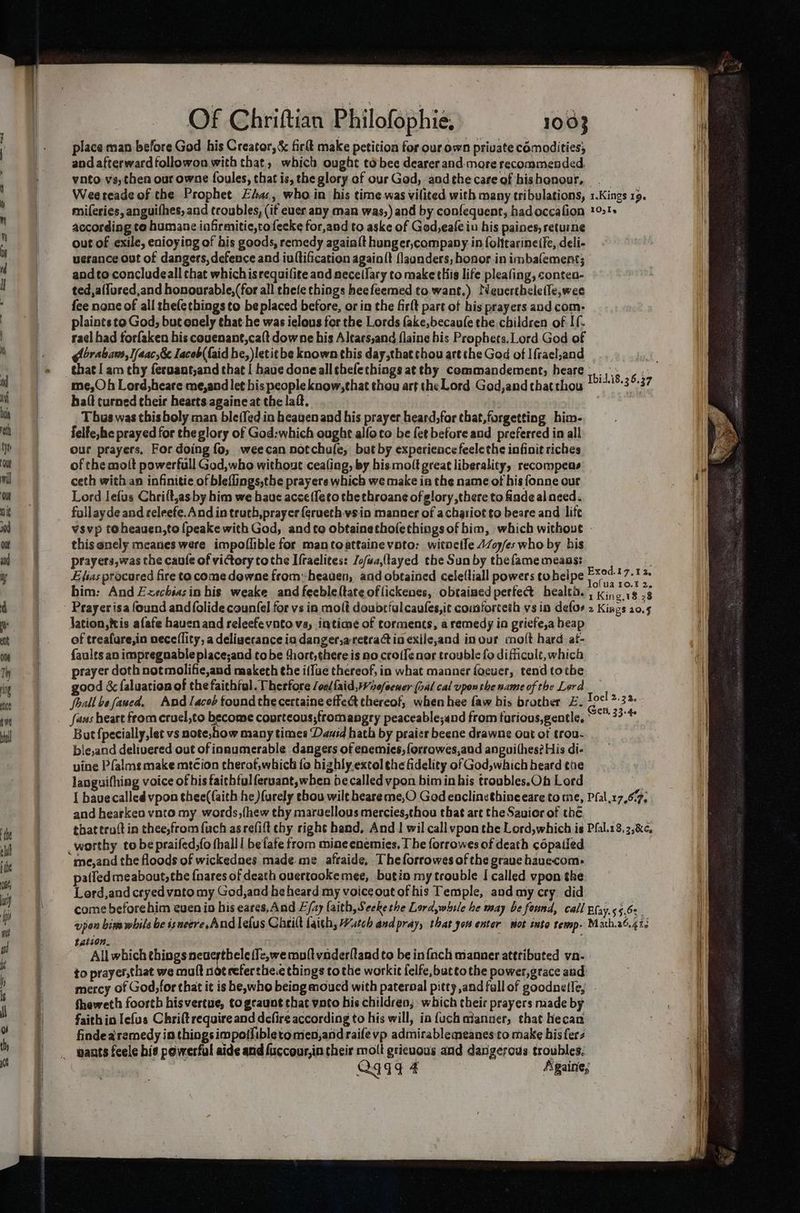 Of Chriſtian Philoſophie, 1003
place man before God his Creator, & firſt make petition for our own priuate cōmodities,
and afterward followon with that, which ought to bee dearer and more recommended
vnto vs, then our owne ſoules, that is, the glory of our God, and the care of his honour.
Wee reade of the Prophet Elias, who in his time was viſited with many tribulations, 1.Kings 19.
miſeries, anguiſhes, and troubles, (if euer any man was,) and by conſequent, had occaſion 10,1.
according to humane infirmitie, to ſeeke for, and to aske of God, eaſe in his paines, returne
out of exile, enioying of his goods, remedy againſt hunger, company in ſolitarineſſe, deli-
uerance out of dangers, defence and iuſtification againſt ſlaunders, honor in imbaſement;
and to conclude all that which is requiſite and neceſſary to make this life pleaſing, conten-
ted, aſſured, and honourable, (for all theſe things hee ſeemed to want.) Neuertheleſſe, wee
ſee none of all theſe things to be placed before, or in the firſt part of his prayers and com-
plaints to God, but onely that he was ielous for the Lords ſake, becauſe the children of Iſ-
rael had forſaken his couenant, caſt downe his Altars, and ſlaine his Prophets. Lord God of
Abraham, Iſaac, & Iacob (ſaid he,) let it be known this day, that thou art the God of Iſrael, and
that I am thy ſeruant, and that I haue done all theſe things at thy commandement, heare
me, Oh Lord, heare me, and let his people know, that thou art the Lord God, and that thou Ibid.18.36.37
haſt turned their hearts againe at the laſt.
Thus was this holy man bleſſed in heauen and his prayer heard, for that, forgetting him-
ſelfe, he prayed for the glory of God: which ought alſo to be ſet before and preferred in all
our prayers. For doing ſo, wee can not chuſe, but by experience feele the infinit riches
of the moſt powerfull God, who without ceaſing, by his moſt great liberality, recompens
ceth with an infinitie of bleſſings, the prayers which we make in the name of his ſonne our
Lord Ieſus Chriſt, as by him we haue acceſſe to the throane of glory, there to finde al need.
full ayde and releefe. And in truth, prayer ſerueth vs in manner of a chariot to beare and lift
vs vp to heauen, to ſpeake with God, and to obtaine thoſe things of him, which without
this onely meanes were impoſſible for man to attaine vnto: witneſſe Moyſes who by his
prayers, was the cauſe of victory to the Iſraelites: Ioſua, ſtayed the Sun by the ſame means:
Elias procured fire to come downe from heauen, and obtained celeſtiall powers to helpe Exod.17.12.
him: And Ezechias in his weake and feeble ſtate of ſickenes, obtained perfect health. Ioſua 10.12. 1 King.18 38
Prayer is a ſound and ſolide counſel for vs in moſt doubtful cauſes, it comforteth vs in deſo- 2 Kings 20.5
lation, & is a ſafe hauen and releefe vnto vs, in time of torments, a remedy in griefe, a heap
of treaſure, in neceſſity, a deliuerance in danger, a retract in exile, and in our moſt hard aſ-
ſaults an impregnable place; and to be ſhort, there is no croſſe nor trouble ſo difficult, which
prayer doth not molifie, and maketh the iſſue thereof, in what manner ſoeuer, tend to the
good & ſaluation of the faithful. Therfore Ioel ſaid, Whoſoeuer ſhal cal vpon the name of the Lord
ſhall be ſaued. And Iacob found the certaine effect thereof, when hee ſaw his brother E- Ioel 2.32.
ſaus heart from cruel, to become courteous; from angry peaceable; and from furious, gentle. Gen. 33.4.
But ſpecially, let vs note, how many times Dauid hath by praier beene drawne out of trou-
ble, and deliuered out of innumerable dangers of enemies, ſorrowes, and anguiſhes? His di-
uine Pſalms make mtcion therof, which ſo highly extol the fidelity of God, which heard the
languiſhing voice of his faithful ſeruant, when he called vpon him in his troubles. Oh Lord
I haue called vpon thee (ſaith he) ſurely thou wilt heare me, O God encline thine eare to me, Pſal.17.6.7.
and hearken vnto my words, ſhew thy maruellous mercies, thou that art the Sauior of thē
that truſt in thee, from ſuch as reſiſt thy right hand. And I wil call vpon the Lord, which is Pſal.18.3,&c.
worthy to be praiſed, ſo ſhall I be ſafe from mine enemies. The ſorrowes of death cōpaſſed
me, and the floods of wickednes made me afraide. The ſorrowes of the graue haue com-
paſſed me about, the ſnares of death ouertooke mee, but in my trouble I called vpon the
Lord, and cryed vnto my God, and he heard my voice out of his Temple, and my cry did
come before him euen in his eares. And Eſay ſaith, Seeke the Lord, while he may be found, call Eſay.55.6.
vpon him while he is neere. And Ieſus Chriſt ſaith, Watch and pray, that you enter not into temp- Math.26.41.
tation.
All which things neuertheleſſe, we muſt vnderſtand to be in ſuch manner attributed vn-
to prayer, that we muſt not refer theſe things to the work it ſelfe, but to the power, grace and
mercy of God, for that it is he, who being moued with paternal pitty, and full of goodneſſe,
ſheweth foorth his vertue, to graunt that vnto his children, which their prayers made by
faith in Ieſus Chriſt require and deſire according to his will, in ſuch manner, that he can
finde a remedy in things impoſſible to men, and raiſe vp admirable meanes to make his ſer-
uants feele his powerful aide and ſuccour, in their moſt grieuous and dangerous troubles.
Qqqq 4 Againe,